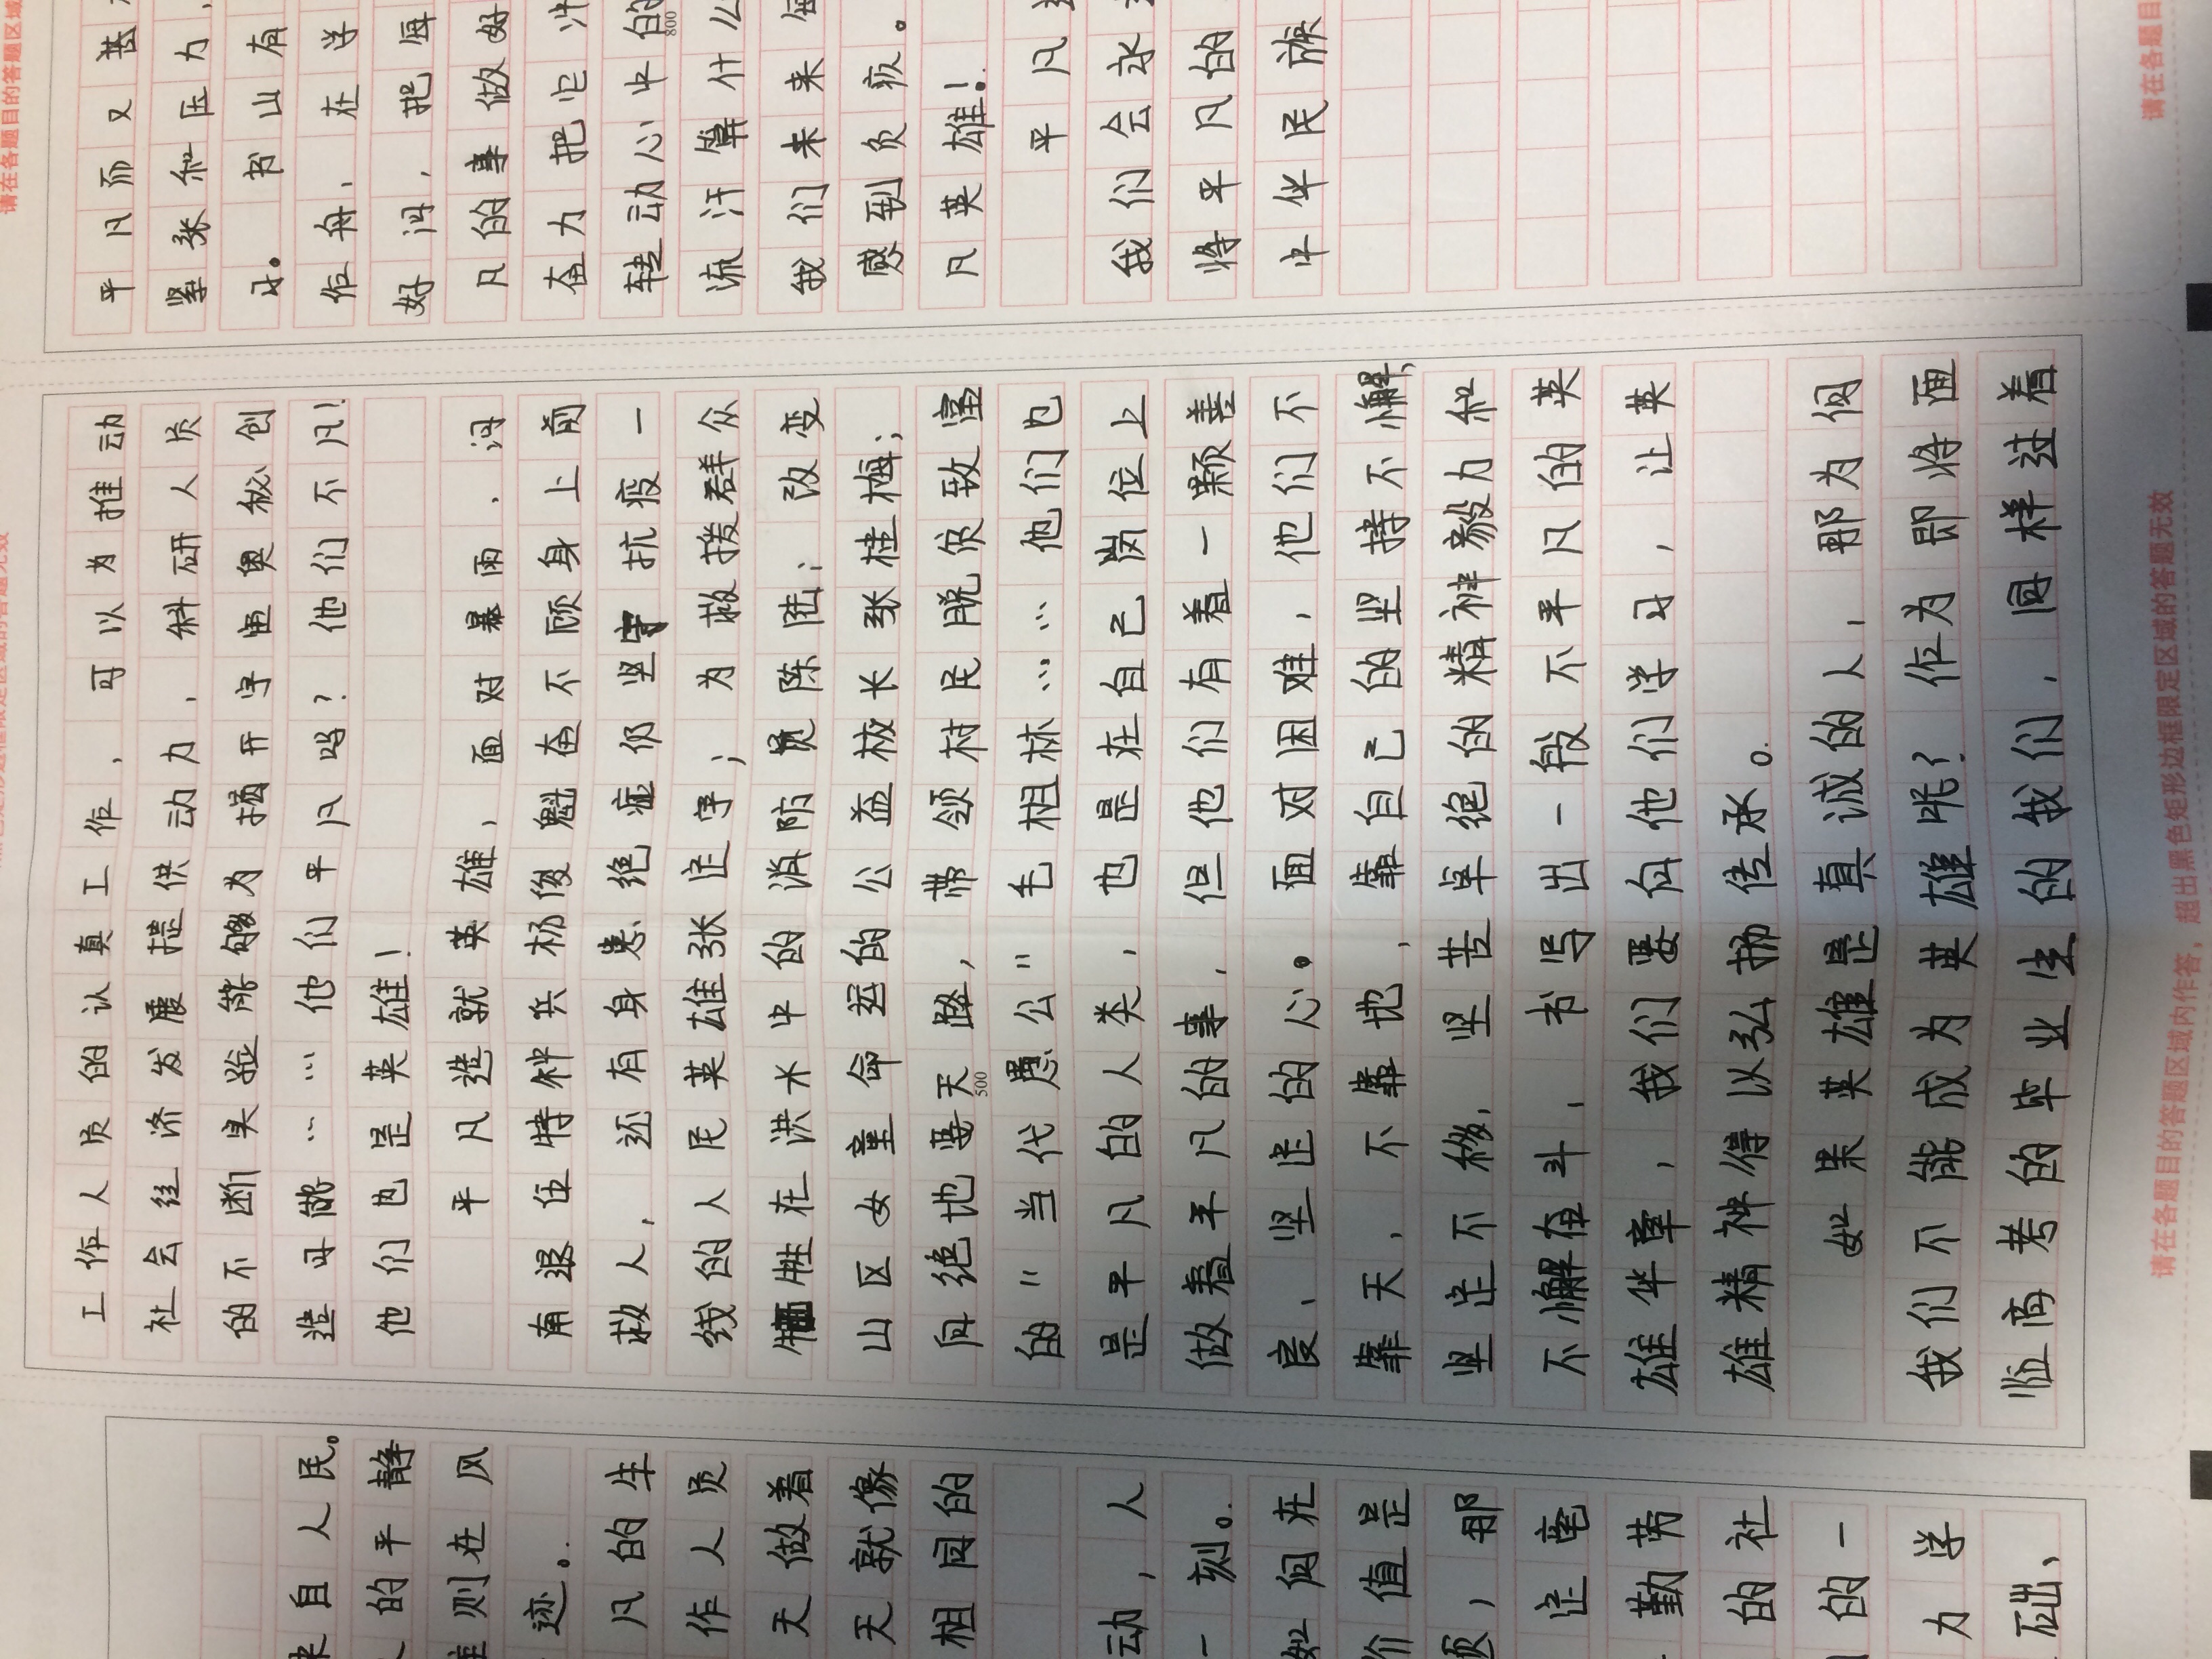 来自人民。
的平静
则在风
迹。
凡的生
作人员
天做着
天就像
相同的
动，人
一刻。
如何在
价值是
，那
勤劳
的社
的一
力学
础、
工作人员的认真工作，可以为推动
社会经济发展提供动力，科研人员
的不断实验能够为揭开宇宙奥秘创
造可能……他们平凡吗？他们不凡！
他们也是英雄！
平凡造就英雄，面对暴雨，河
南退伍特种兵杨俊魁奋不顾身上前
救人，还有身患绝症仍坚守抗疫一
线的人民英雄张定宇；为救援群众
牺牲在洪水中的消防员陈陆；改变
山区女童命运的公益校长张桂梅；
向绝地要天路，带领村民脱贫致富
500
的"当代愚公"毛相林……他们也
是平凡的人类，也是在自己岗位上
做着平凡的事，但他们有着一颗善
良、坚定的心。面对困难，他们不
靠天，不靠地，靠自己的坚持不懈，
坚定不移，坚苦卓绝的精神毅力和
不懈奋斗，书写出一段不平凡的英
雄华章，我们要向他们学习，让英
雄精神得以弘扬传承。
如果英雄是真诚的人，那为何
我们不能成为英雄呢？作为即将面
临高考的毕业生的我们，同样过着
请在各题目的答题区域内作答，超出黑色矩形边框限定区域的答题无效
请在各题目的答题区域
平凡而又甚
紧张和压力，
习。书山有
作舟，在学
好河，把每
凡的事做好
奋力把它冲
转动心中的
800
流汗算什么
我们未来每
感到负疚。
凡英雄！
平凡
我们会永
将平凡的
中华民族
请在各题目